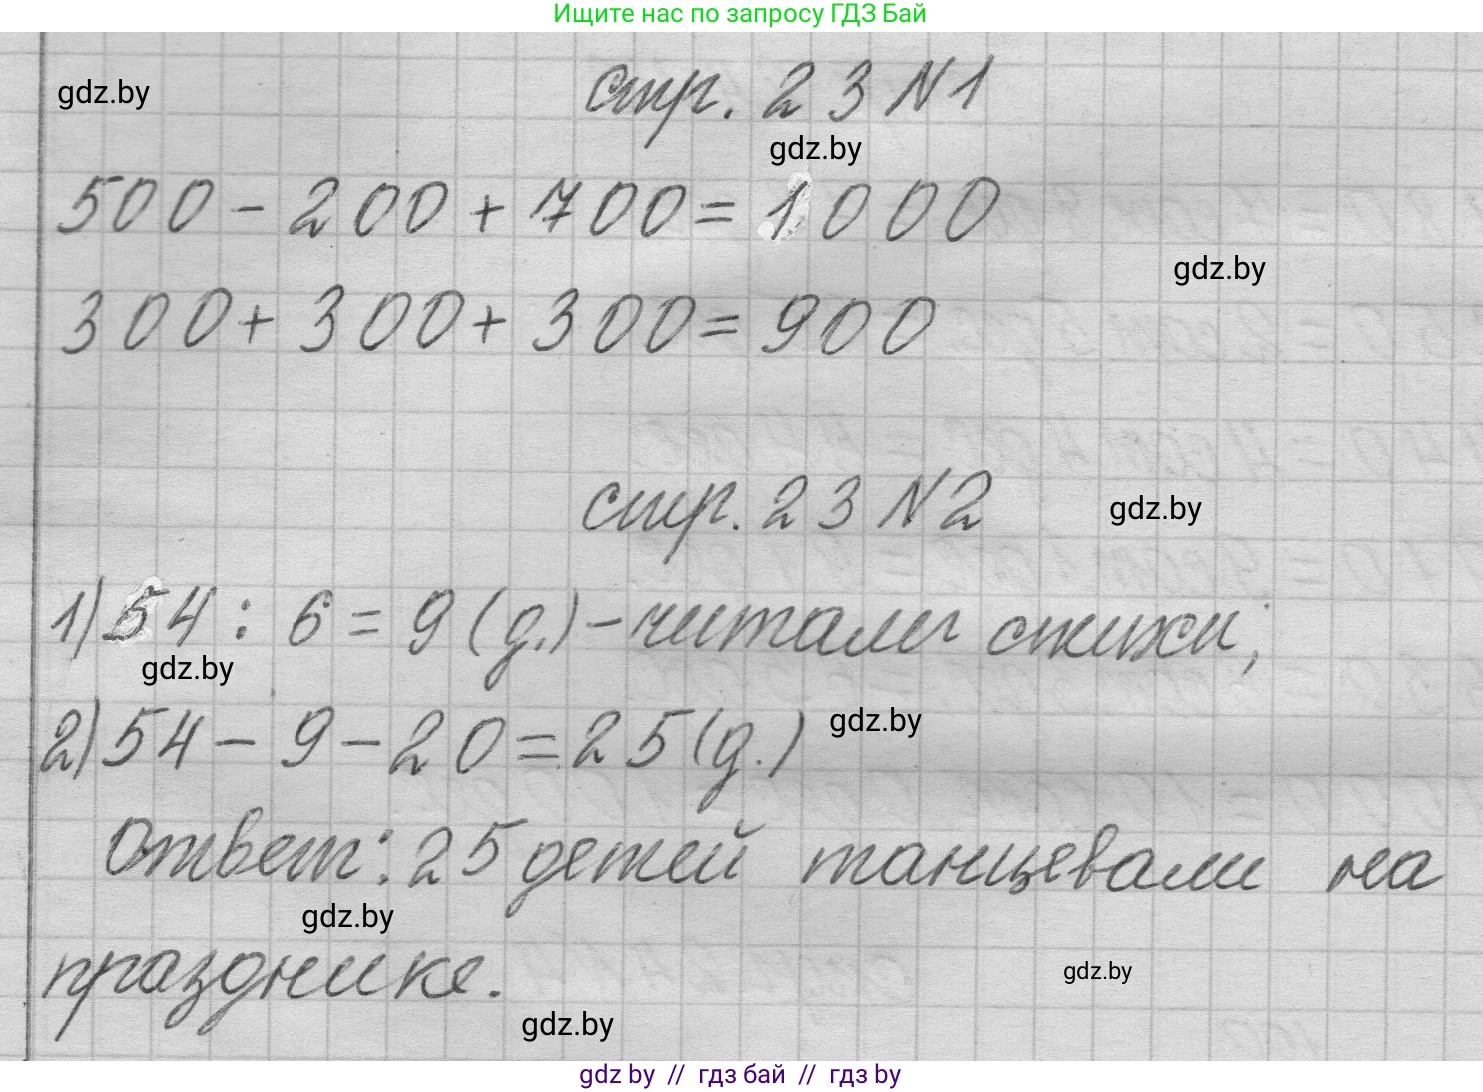 Ищите нас по запросу ГДЗ Бай
gdz.by
стр. 23 N1
gdz.by
500 - 200 + 700 = 1000
gdz.by
300 + 300 + 300 = 900
стр. 23 N2
gdz.by
1) 54 : 6 = 9 (д.) - читали стихи;
gdz.by
2) 54 - 9 - 20 = 25 (д.)
gdz.by
Ответ: 25 детей танцевали на
gdz.by
празднике.
gdz.by
gdz.by
gdz by // гдз бай // гдз by